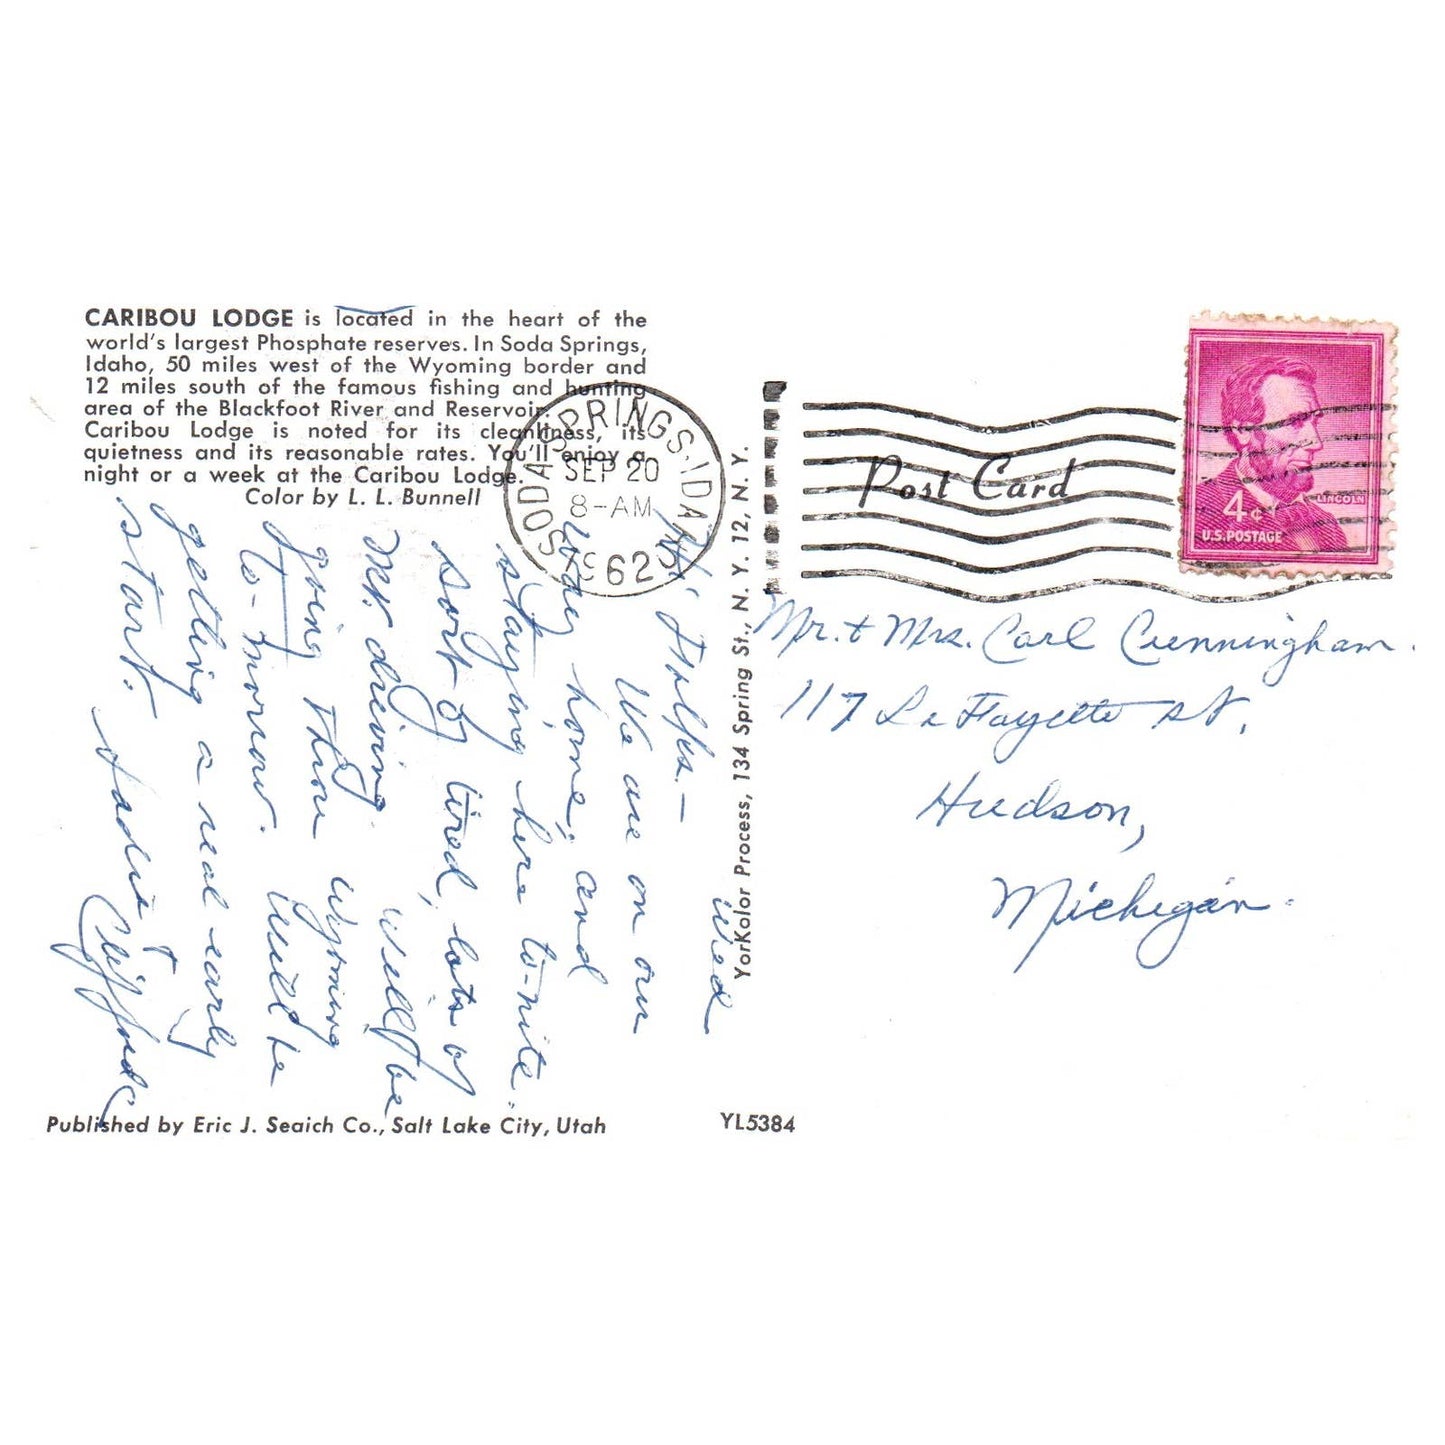 CARIBOU LODGE is located in the heart of the
world's largest Phosphate reserves. In Soda Springs,
Idaho, 50 miles west of the Wyoming border and
12 miles south of the famous fishing and hunting
area of the Blackfoot River and Reservoir.
Caribou Lodge is noted for its cleanliness, its
quietness and its reasonable rates. You'll enjoy a
night or a week at the Caribou Lodge.
Color by L. L. Bunnell
SODA SPRINGS, IDAHO
SEP 20
8-AM
1962
Wed
Hi Folks.—
We are on our
way home, and
staying here to-nite.
Sort of tired, lots of
driving. Will be
going thru Wyoming
to-morrow. Will be
getting a real early
start.
Sadie +
Clifford
Published by Eric J. Seaich Co., Salt Lake City, Utah
YL5384
YorKolor Process, 134 Spring St., N. Y. 12, N. Y.
Post Card
4¢
LINCOLN
U.S. POSTAGE
Mr. + Mrs. Carl Cunningham.
117 La Fayette St,
Hudson,
Michigan.